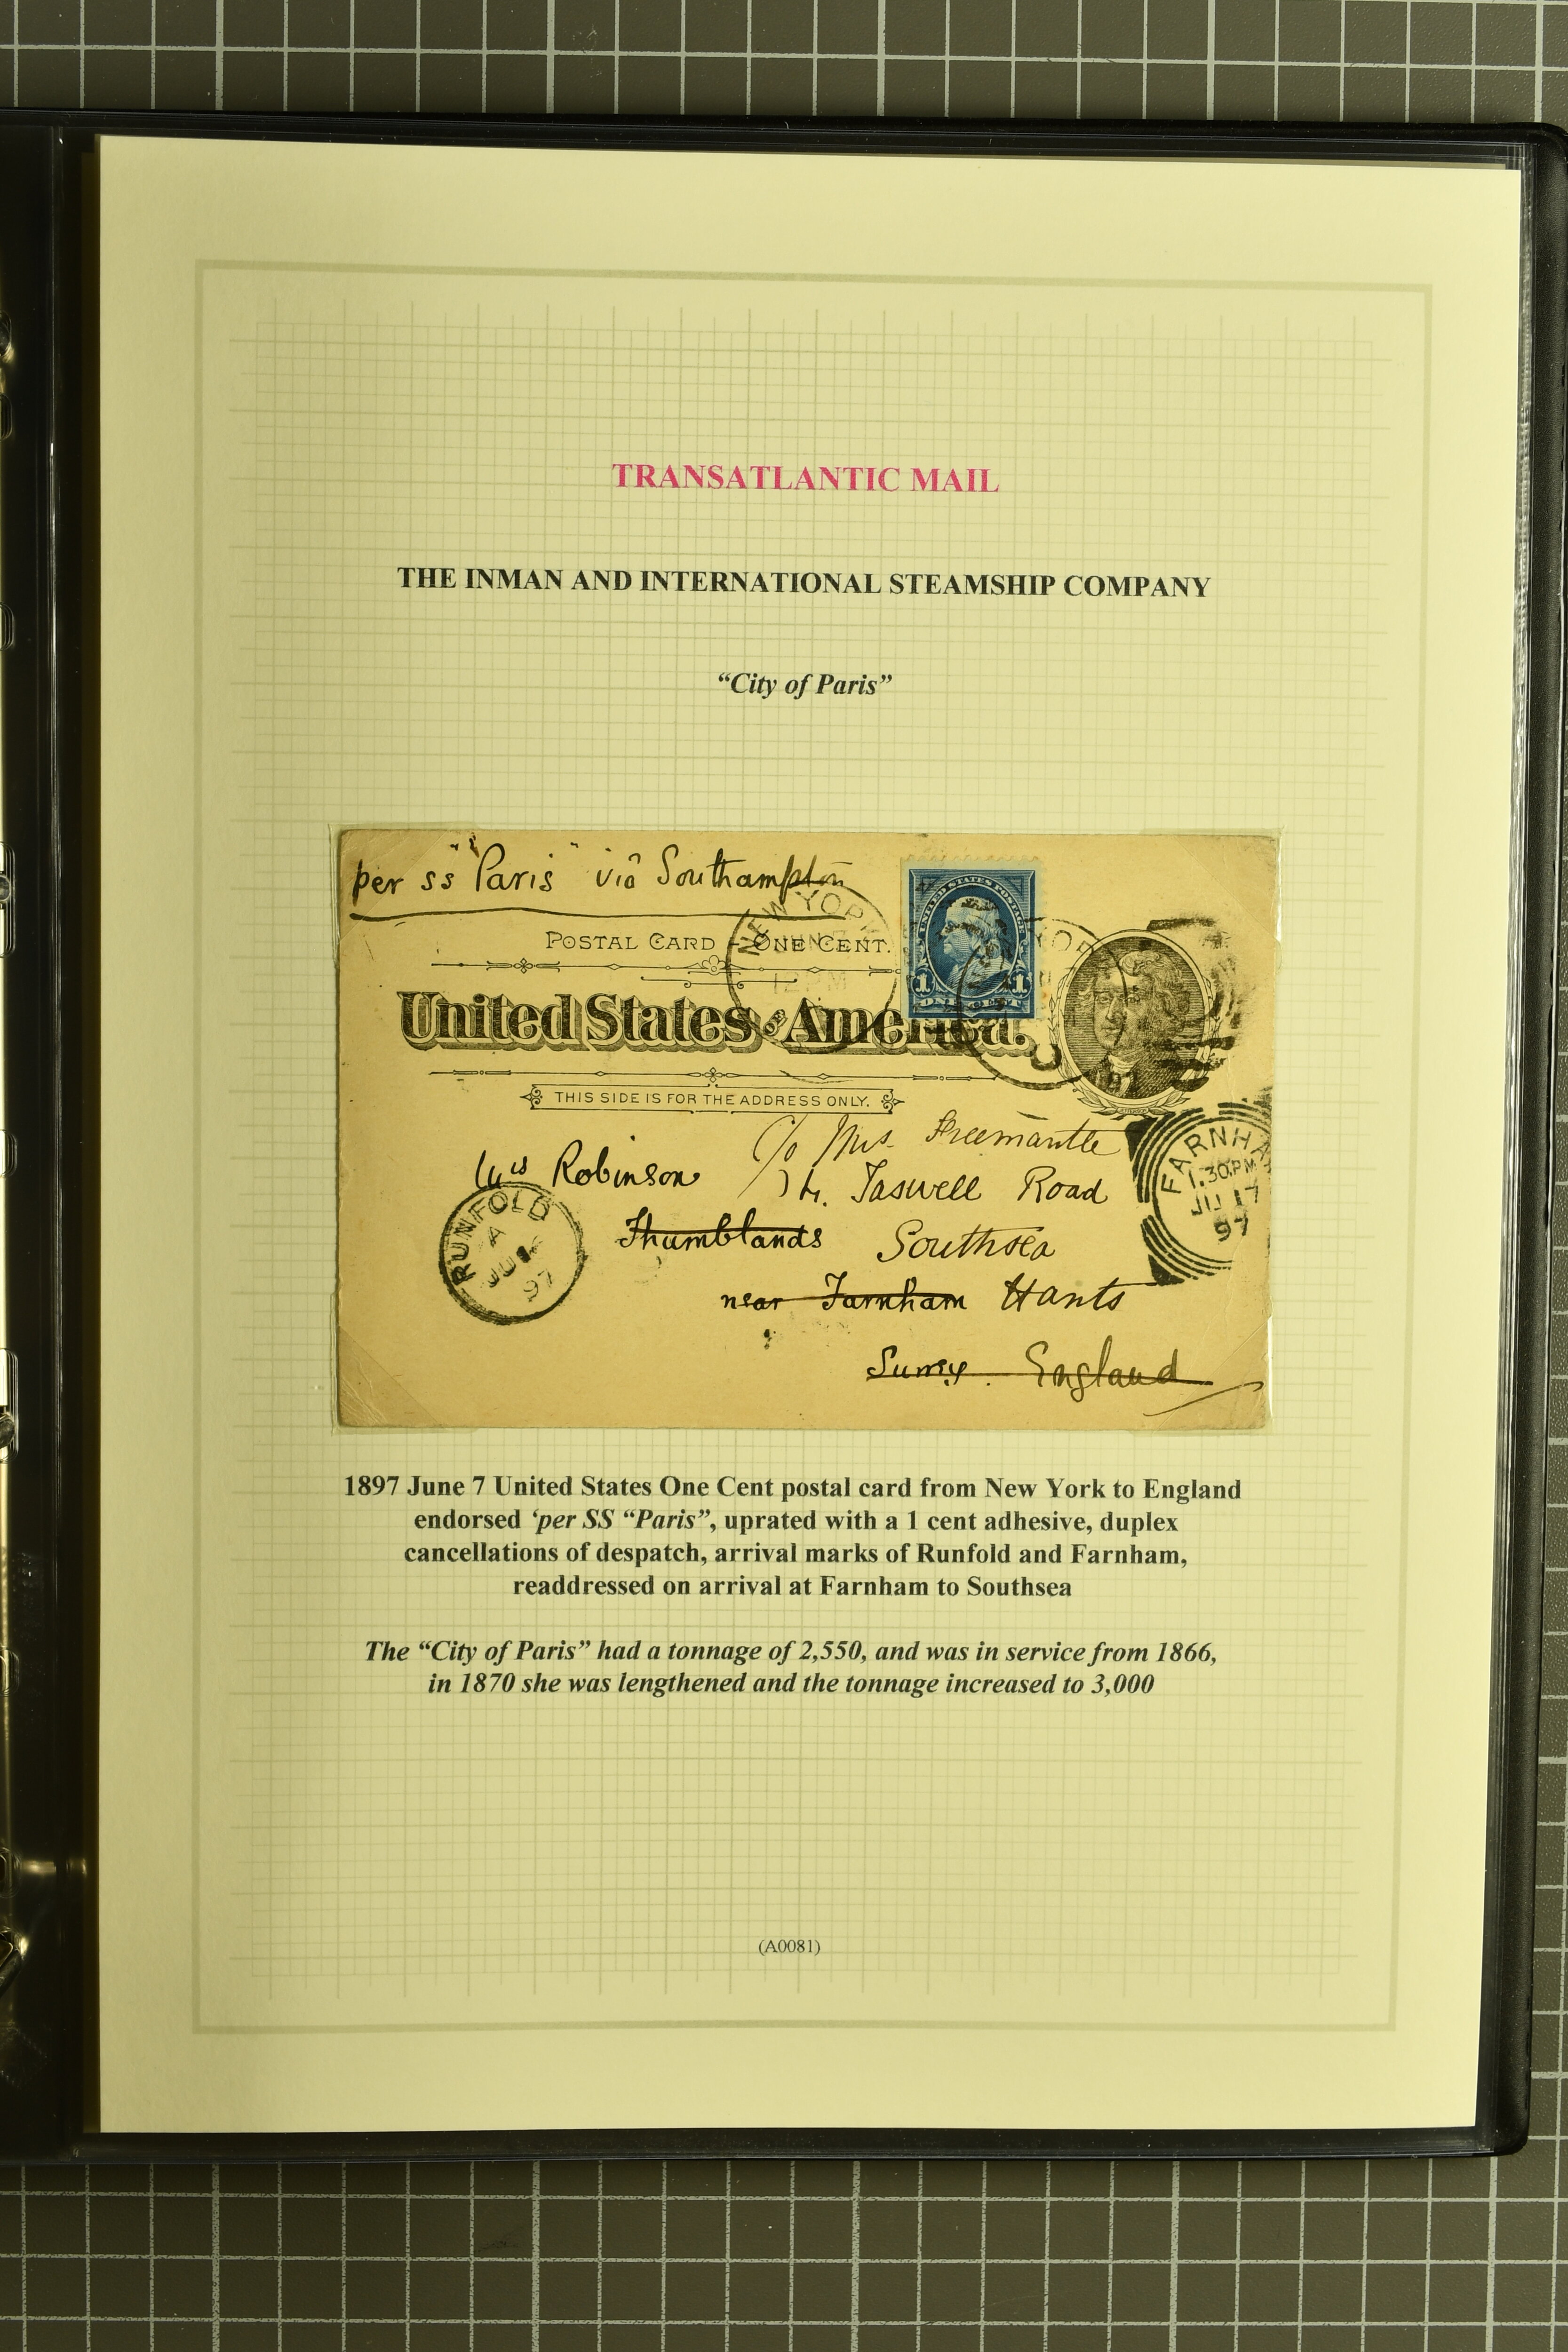 TRANSATLANTIC MAIL
THE INMAN AND INTERNATIONAL STEAMSHIP COMPANY
“City of Paris”
per ss "Paris" via Southampton
NEW YORK
POSTAL CARD - ONE CENT.
United States of America.
UNITED STATES POSTAGE
1 1
ONE CENT
THIS SIDE IS FOR THE ADDRESS ONLY.
c/o Mrs. Freemantle
Robinson
Taswell Road
Thumblands Southsea
near Farnham Hants
Surrey. England
RUNFOLD
A
JU
97
FARNHA
1.30.PM
JU 17
97
1897 June 7 United States One Cent postal card from New York to England
endorsed ‘per SS “Paris”, uprated with a 1 cent adhesive, duplex
cancellations of despatch, arrival marks of Runfold and Farnham,
readdressed on arrival at Farnham to Southsea
The “City of Paris” had a tonnage of 2,550, and was in service from 1866,
in 1870 she was lengthened and the tonnage increased to 3,000
(A0081)